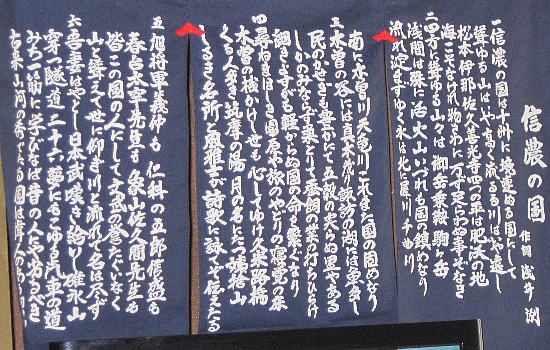 信濃の国
作詞 浅井 洌
一 信濃の国は十州に 境連ぬる国にして
聳ゆる山はいや高く 流るる川はいや遠し
松本伊那佐久善光寺 四つの平は肥沃の地
海こそなけれ物さわに 万ず足らわぬ事ぞなき
二 四方に聳ゆる山々は 御岳乗鞍駒ヶ岳
浅間は殊に活火山 いづれも国の鎮めなり
流れ淀まずゆく水は 北に犀川千曲川
南に木曽川天竜川 これまた国の固めなり
三 木曽の谷には真木茂り 諏訪の湖には魚多し
民のかせぎも豊かにて 五穀の実らぬ里やある
しかのみならず桑とりて 蚕飼の業の打ちひらけ
細きよすがも軽からぬ 国の命を繋ぐなり
四 尋ねまほしき園原や 旅のやどりの寝覚の床
木曽の桟かけし世も 心してゆけ久米路橋
くる人多き筑摩の湯 月の名にたつ姨捨山
しるき名所と風雅士が 詩歌に詠てぞ伝えたる
五 旭将軍義仲も 仁科の五郎信盛も
春台太宰先生も 象山佐久間先生も
皆この国の人にして 文武の誉たぐいなく
山と聳えて世に仰ぎ 川と流れて名は尽ず
六 吾妻はやとし日本武 嘆き給いし碓氷山
穿つ隧道二十六 夢にもこゆる汽車の道
みち一筋に学びなば 昔の人にや劣るべき
古来山河の秀でたる 国は偉人の